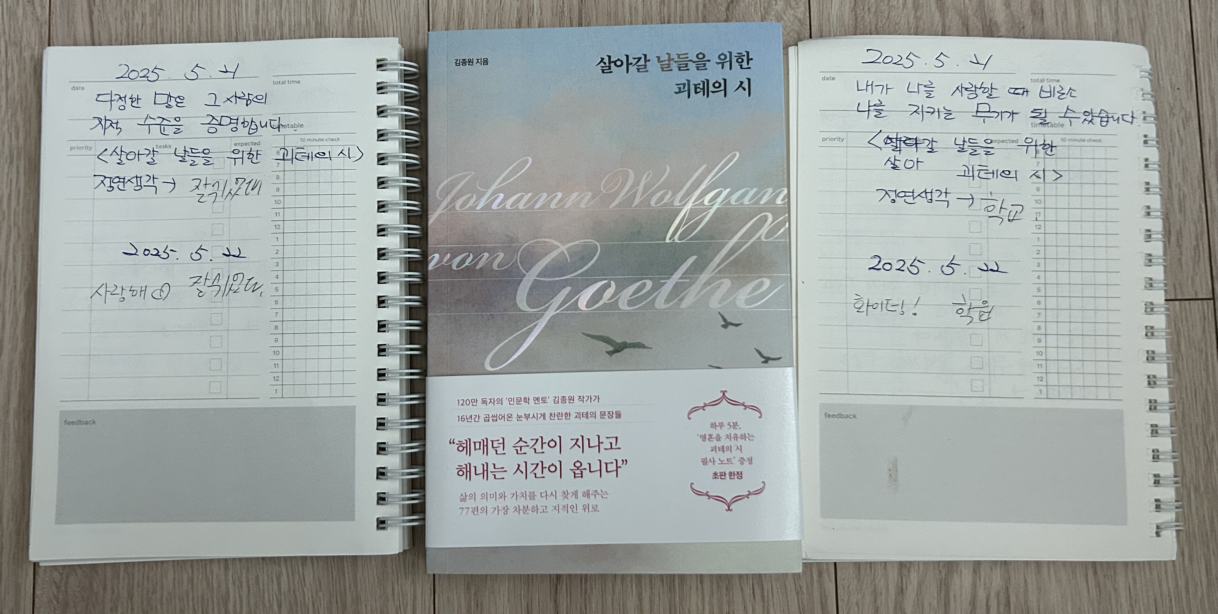 2025. 5. 21
date
total time
다정한 말은 그 사람의
지적 수준을 증명합니다.
timetable
priority
tasks
expected
10 minute check
<살아갈 날들을 위한 괴테의 시>
정연생각→
2025. 5. 22
사랑해
feedback
김종원 지음
살아갈 날들을 위한
괴테의 시
Johann Wolfgang
von Goethe
120만 독자의 '인문학 멘토' 김종원 작가가
16년간 곱씹어온 눈부시게 찬란한 괴테의 문장들
“헤매던 순간이 지나고
해내는 시간이 옵니다”
삶의 의미와 가치를 다시 찾게 해주는
77편의 가장 차분하고 지적인 위로
하루 5분,
'영혼을 치유하는
괴테의 시
필사 노트' 증정
초판 한정
2025. 5. 21
date
total time
내가 나를 사랑할 때 비로소
나를 지키는 무기가 될 수 있습니다
timetable
priority
expected
10 minute check
갈 날들을 위한
살아 괴테의 시>
정연생각→ 학교
2025. 5. 22
화이팅! 학원
feedback